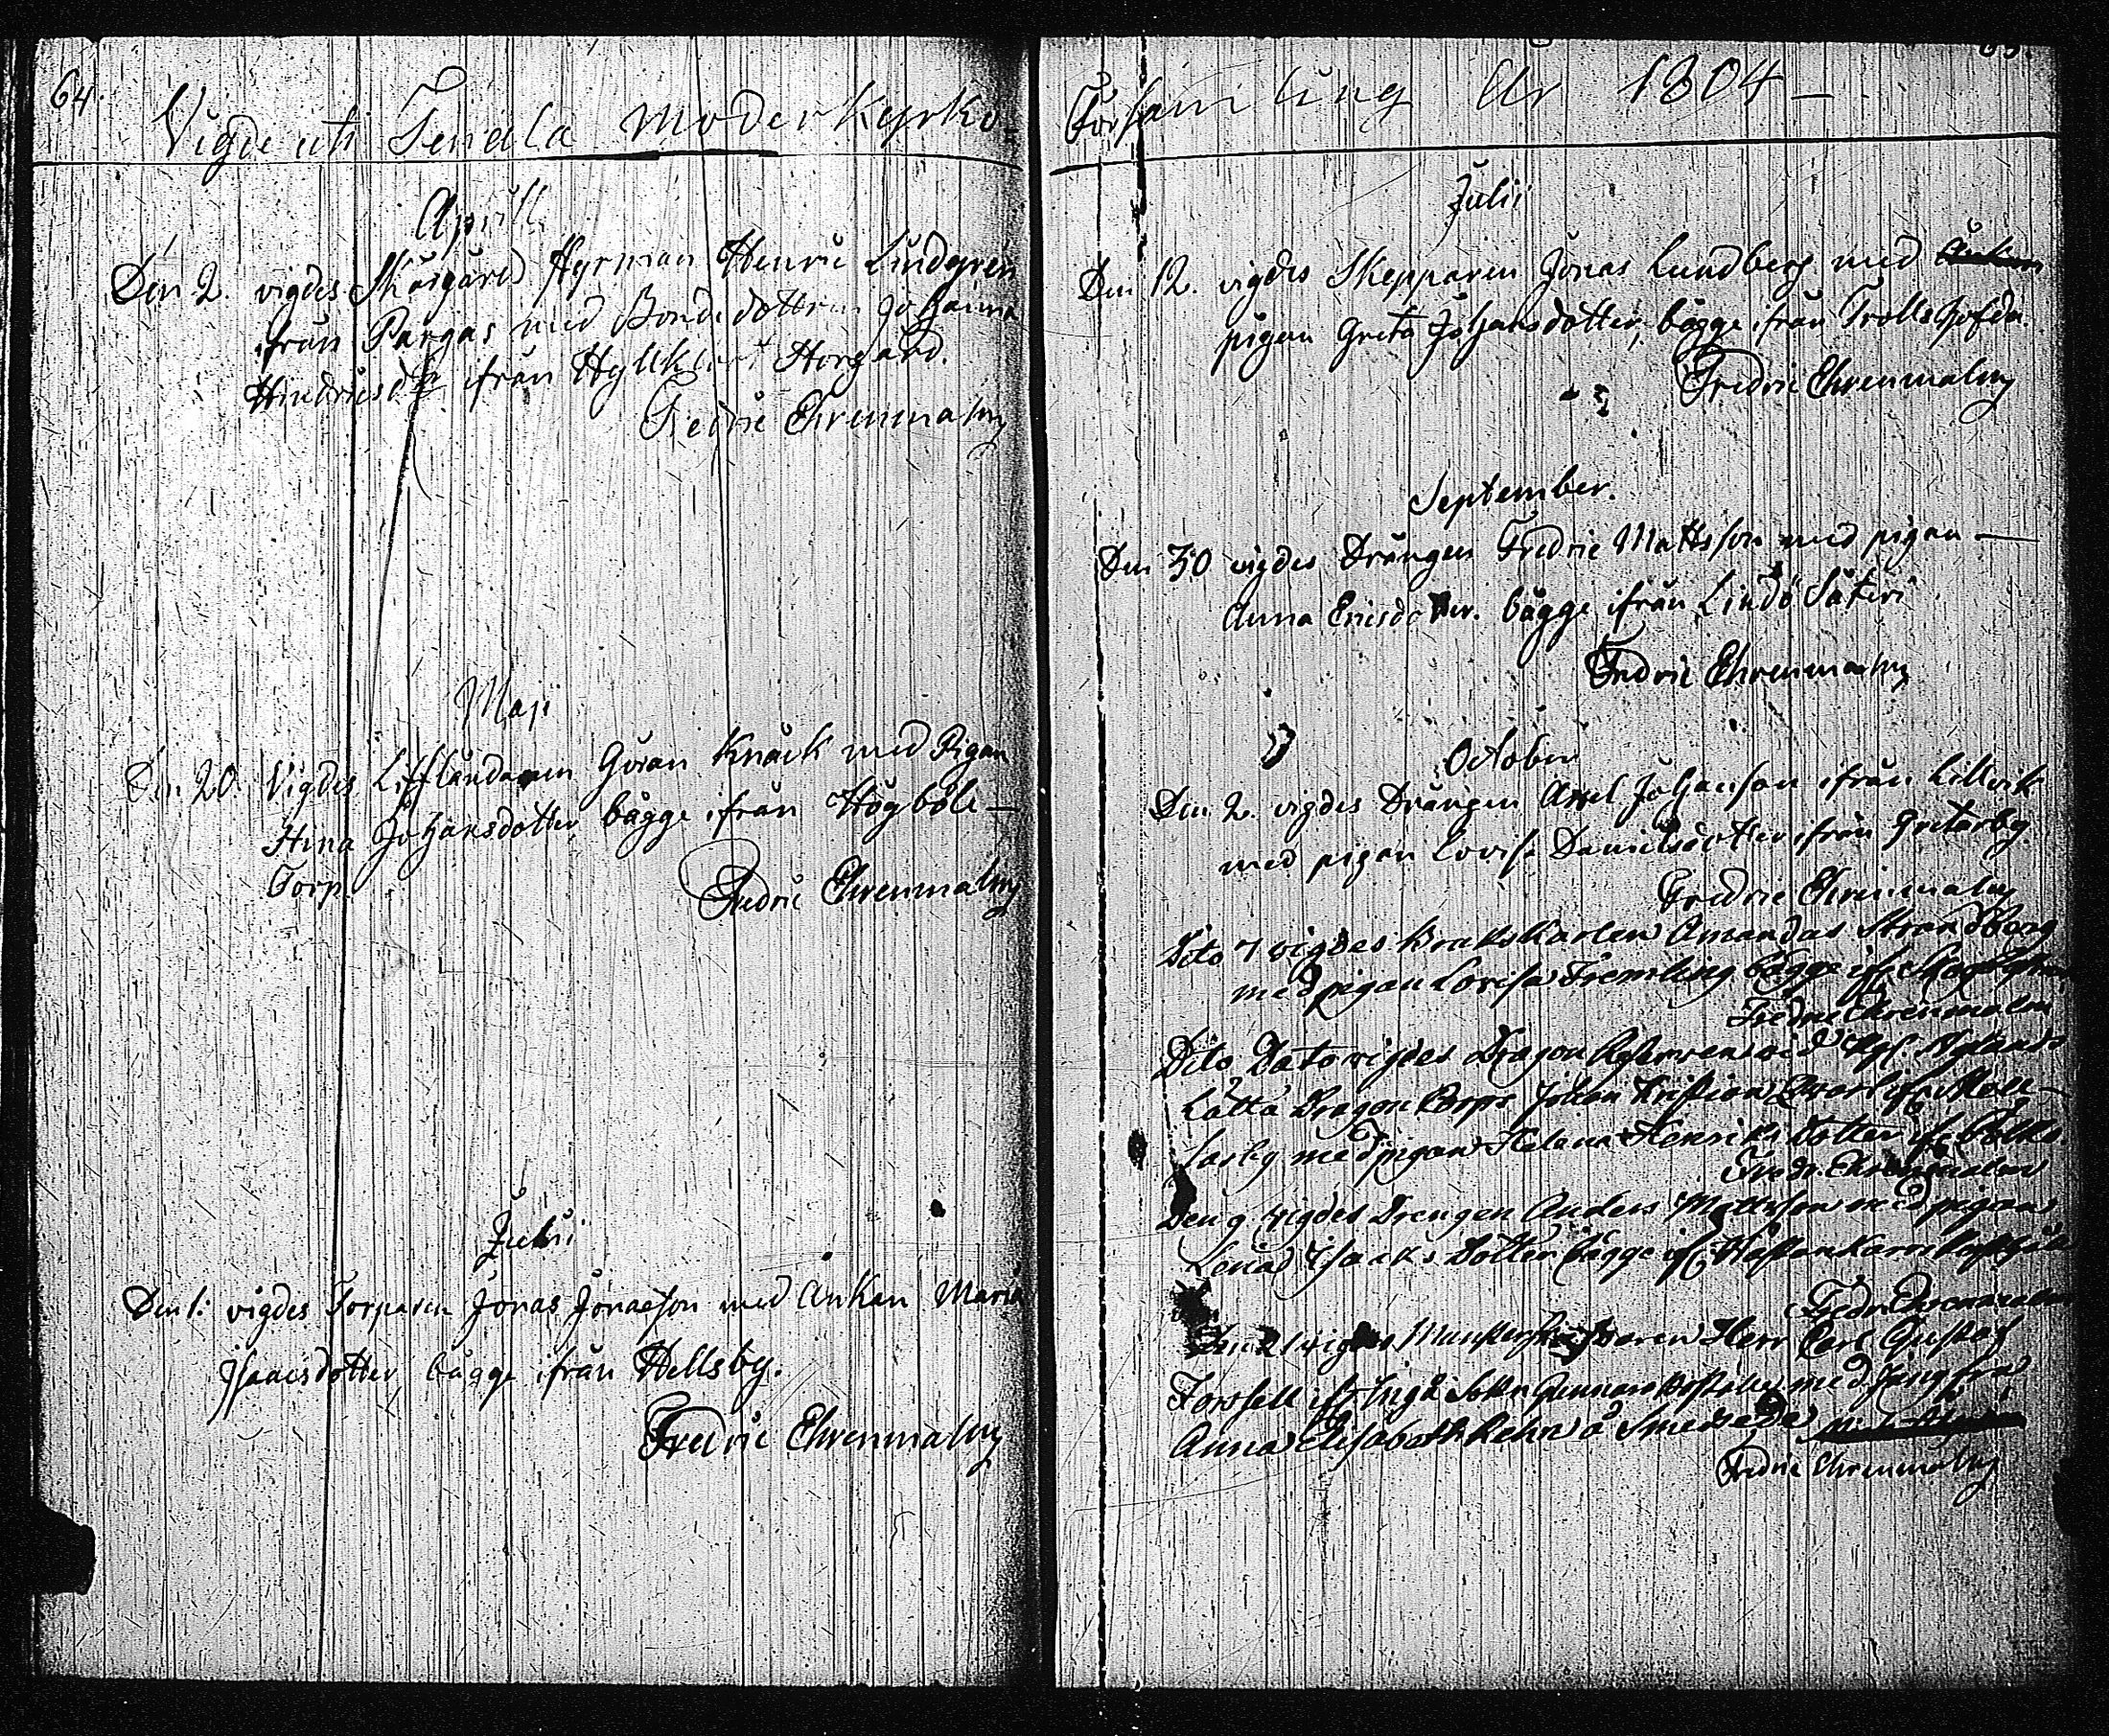 64.
Vigde uti Tenala Moderkyrko
April
Den 2. vigdes Skärgårds Styrman Henric Lindgren
ifrån Pargas med Bonde dottren Johanna
Hindricsdr ifrån Horgård.
Fredric Ehrenmalm
Maji
Den 20. Vigdes Lifländaren Göran Knack med Pigan
Stina Johansdotter bägge ifrån Högböle
Torp.
Fredric Ehrenmalm
Julii
Den 1: vigdes Torparen Jonas Jonasson med Änkan Maria
Isaacsdotter, bägge ifrån Hellsby.
Fredric Ehrenmalm
Församling År 1804
Julii
Den 12. vigdes Skepparen Jonas Lundberg med Änkan
pigan Greta Johansdotter, bägge ifrån Trollshofda.
Fredric Ehrenmalm
September.
Den 30 vigdes Drängen Fredric Mattsson med pigan
Anna Ericsdotter. bägge ifrån Lindö Säteri
Fredric Ehrenmalm
October
Den 2. vigdes Drängen Axel Johanson ifrån Lillvik
med pigan Lovisa Danielsdotter ifrån Gretarby.
Fredric Ehrenmalm
Dito 7 vigdes Amandus Strandberg
med pigan Lovisa Fremling bägge ifr
Fredric Ehrenmalm
Dito Dato vigdes Dragon wid Kgl. Nylands
Lätta Dragon Corps Johan Kristian ifr
med pigan Helena Henriks Dotter ifr
Fredr. Ehrenmalm
Den 9 vigdes Drengen Anders Mattsson med pigan
Lena Isacks Dotter bägge ifr
Fredr Ehrenmalm
Den 21 vigdes Herr Carl Gustaf
Forssell ifr Ingå Sokn med Jungfru
Anna Elisabeth Rehn å Smedsede
Fredric Ehrenmalm